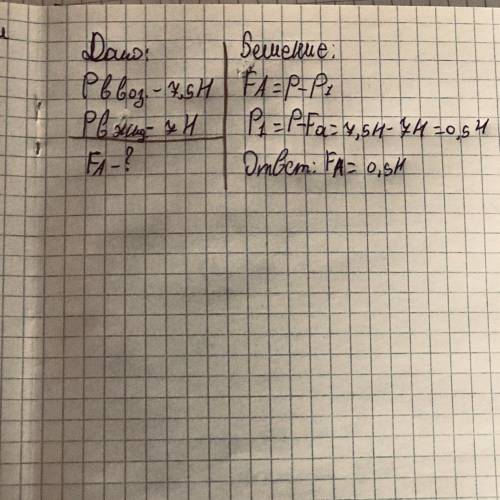 Дано:
P в воз. - 7,5H
P в жид - 7 H
FA - ?
Решение:
FA = P - P1
P1 = P - Fa = 7,5H - 7H = 0,5H
Ответ: FA = 0,5H